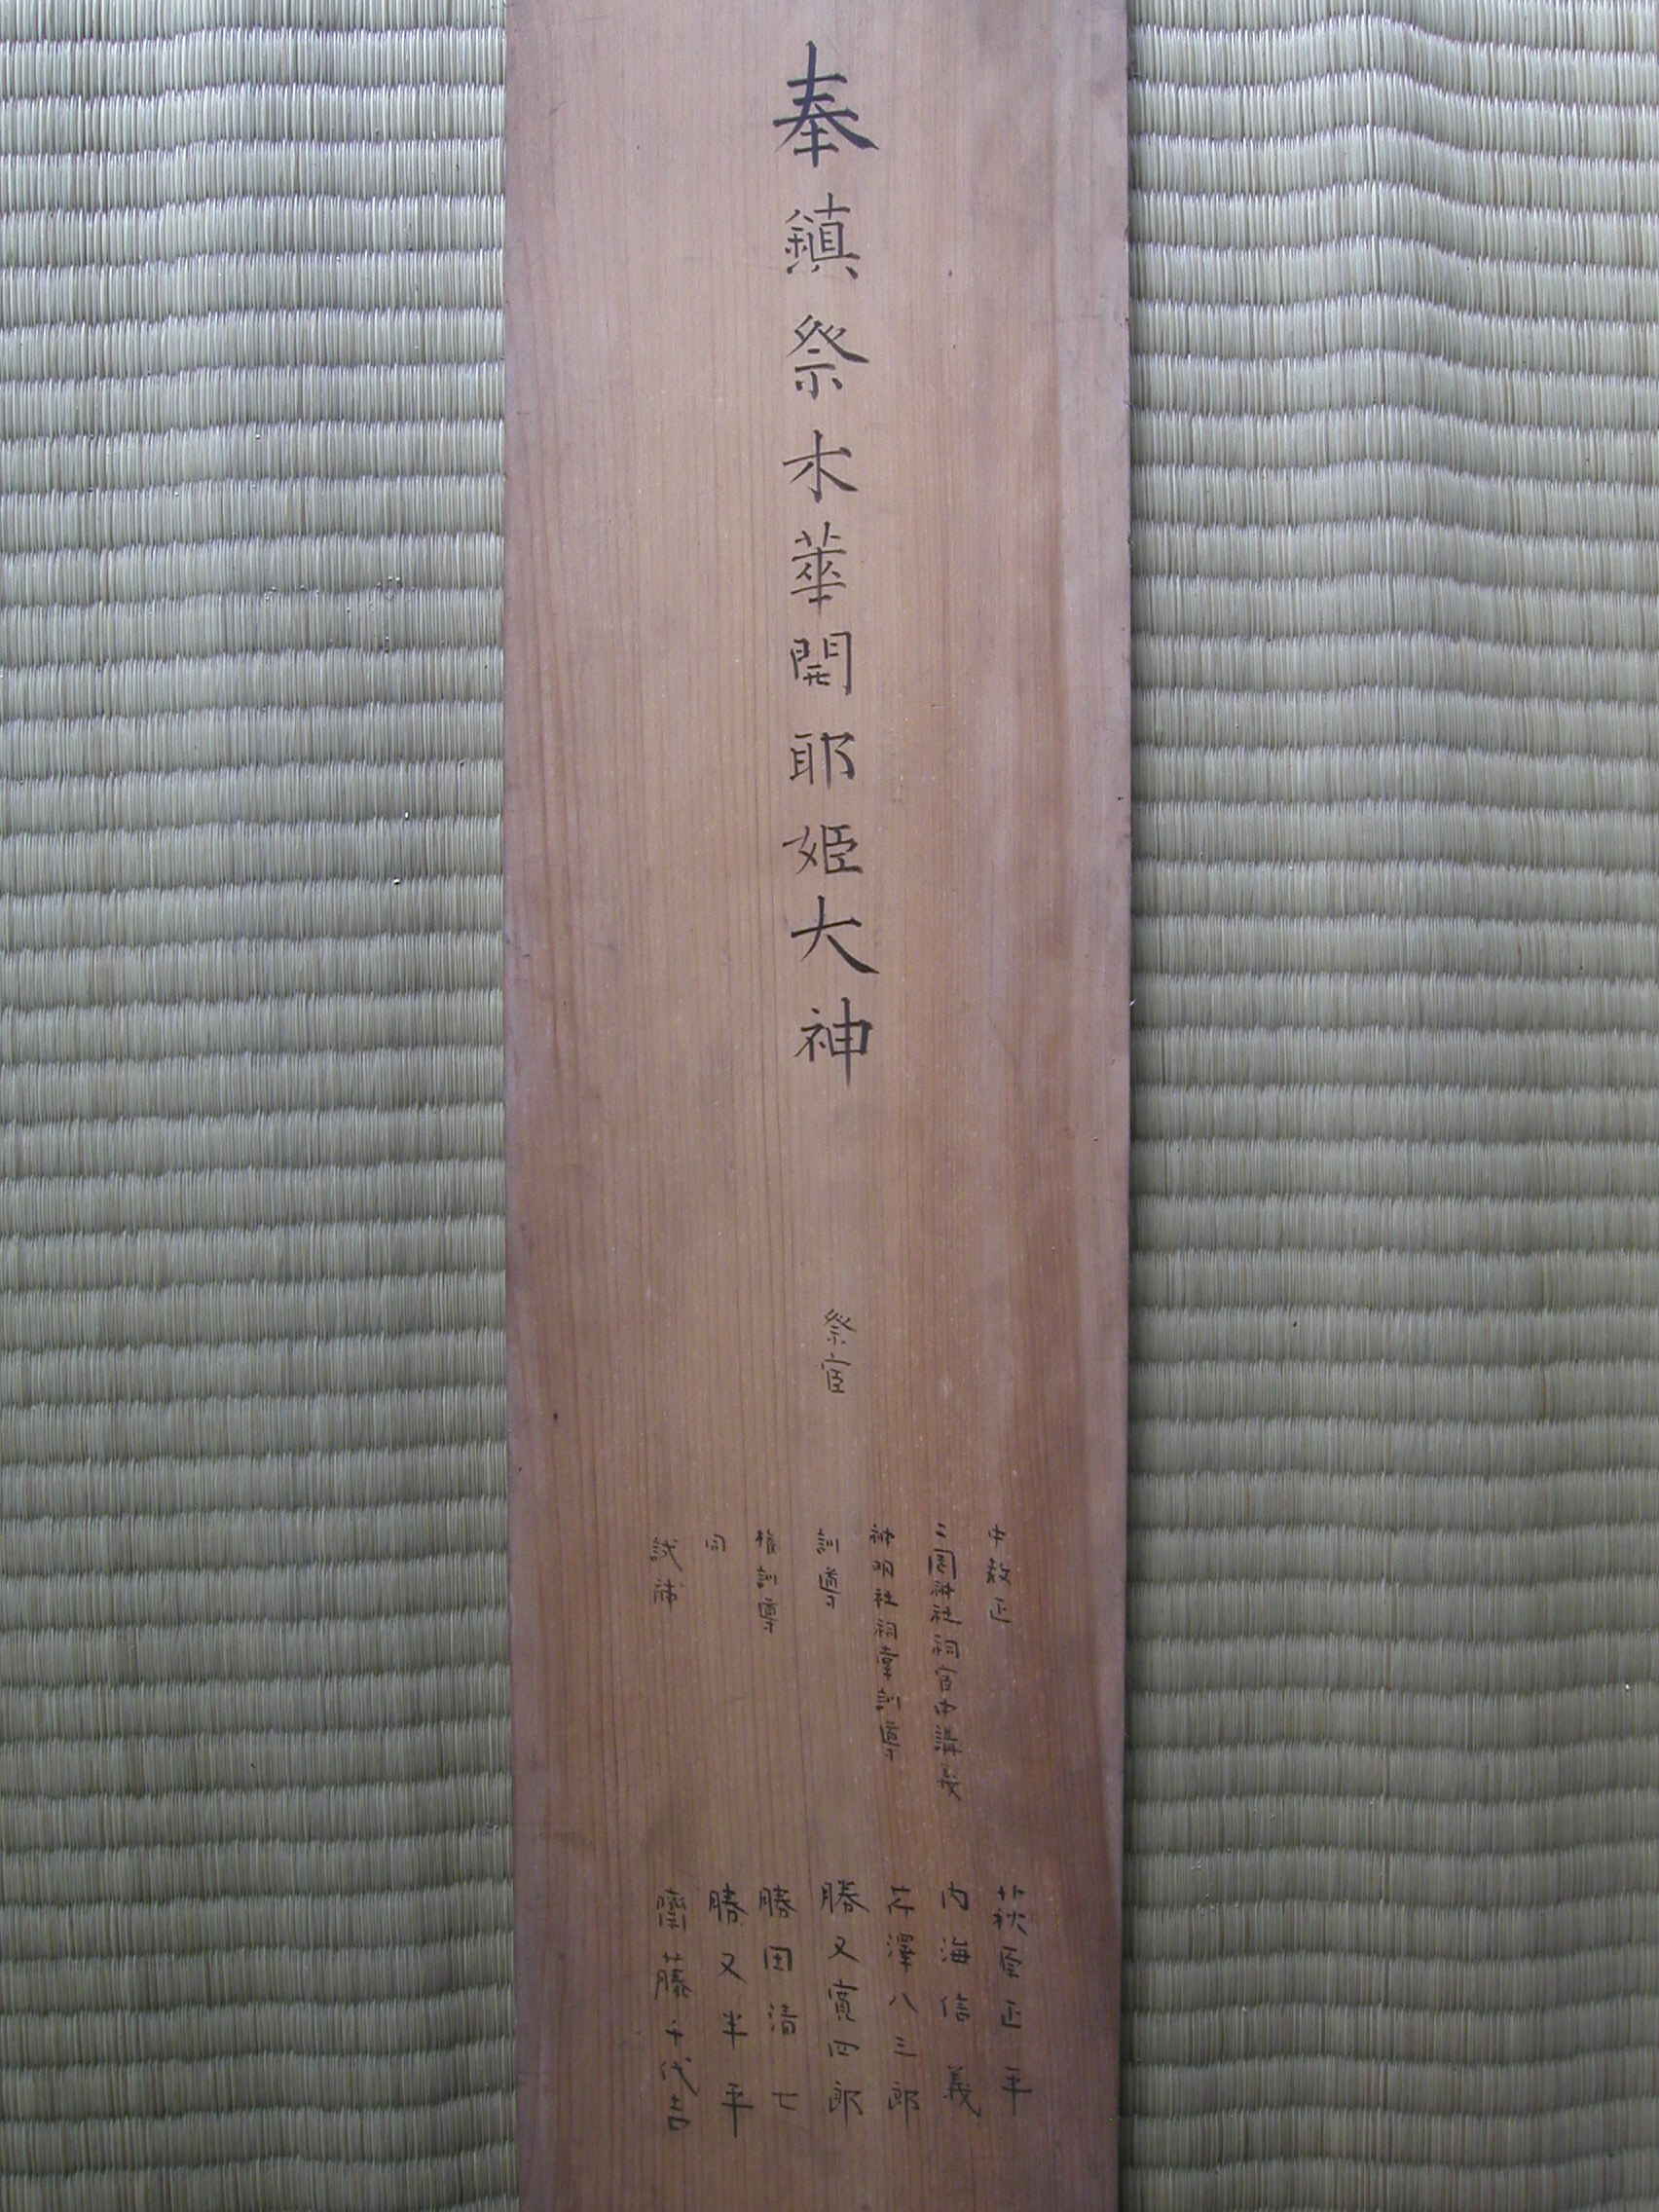 奉鎮祭木華開耶姫大神
祭官
中教正 萩原正平
三国神社祠官中講義 内海信義
神明社祠掌訓導 古澤八三郎
訓導 勝又寅四郎
権訓導 勝田清七
同 勝又半平
試補 齋藤千代吉